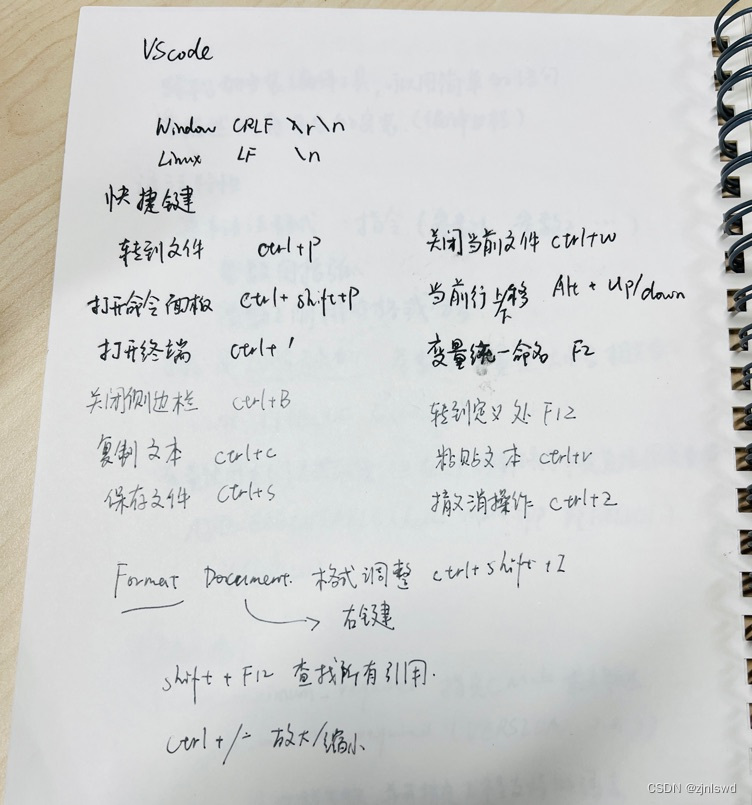 VScode
Window CRLF \r\n
Linux LF \n
快捷键
转到文件 ctrl+P 关闭当前文件 ctrl+w
打开命令面板 ctrl+shift+P 当前行上移 下 Alt + Up/down
打开终端 ctrl+' 变量统一命名 F2
关闭侧边栏 ctrl+B 转到定义处 F12
复制文本 ctrl+c 粘贴文本 ctrl+v
保存文件 ctrl+s 撤消操作 ctrl+Z
Format Document. 格式调整 ctrl+shift+I
右键
shift + F12 查找所有引用.
ctrl +/- 放大/缩小
CSDN @zjnlswd